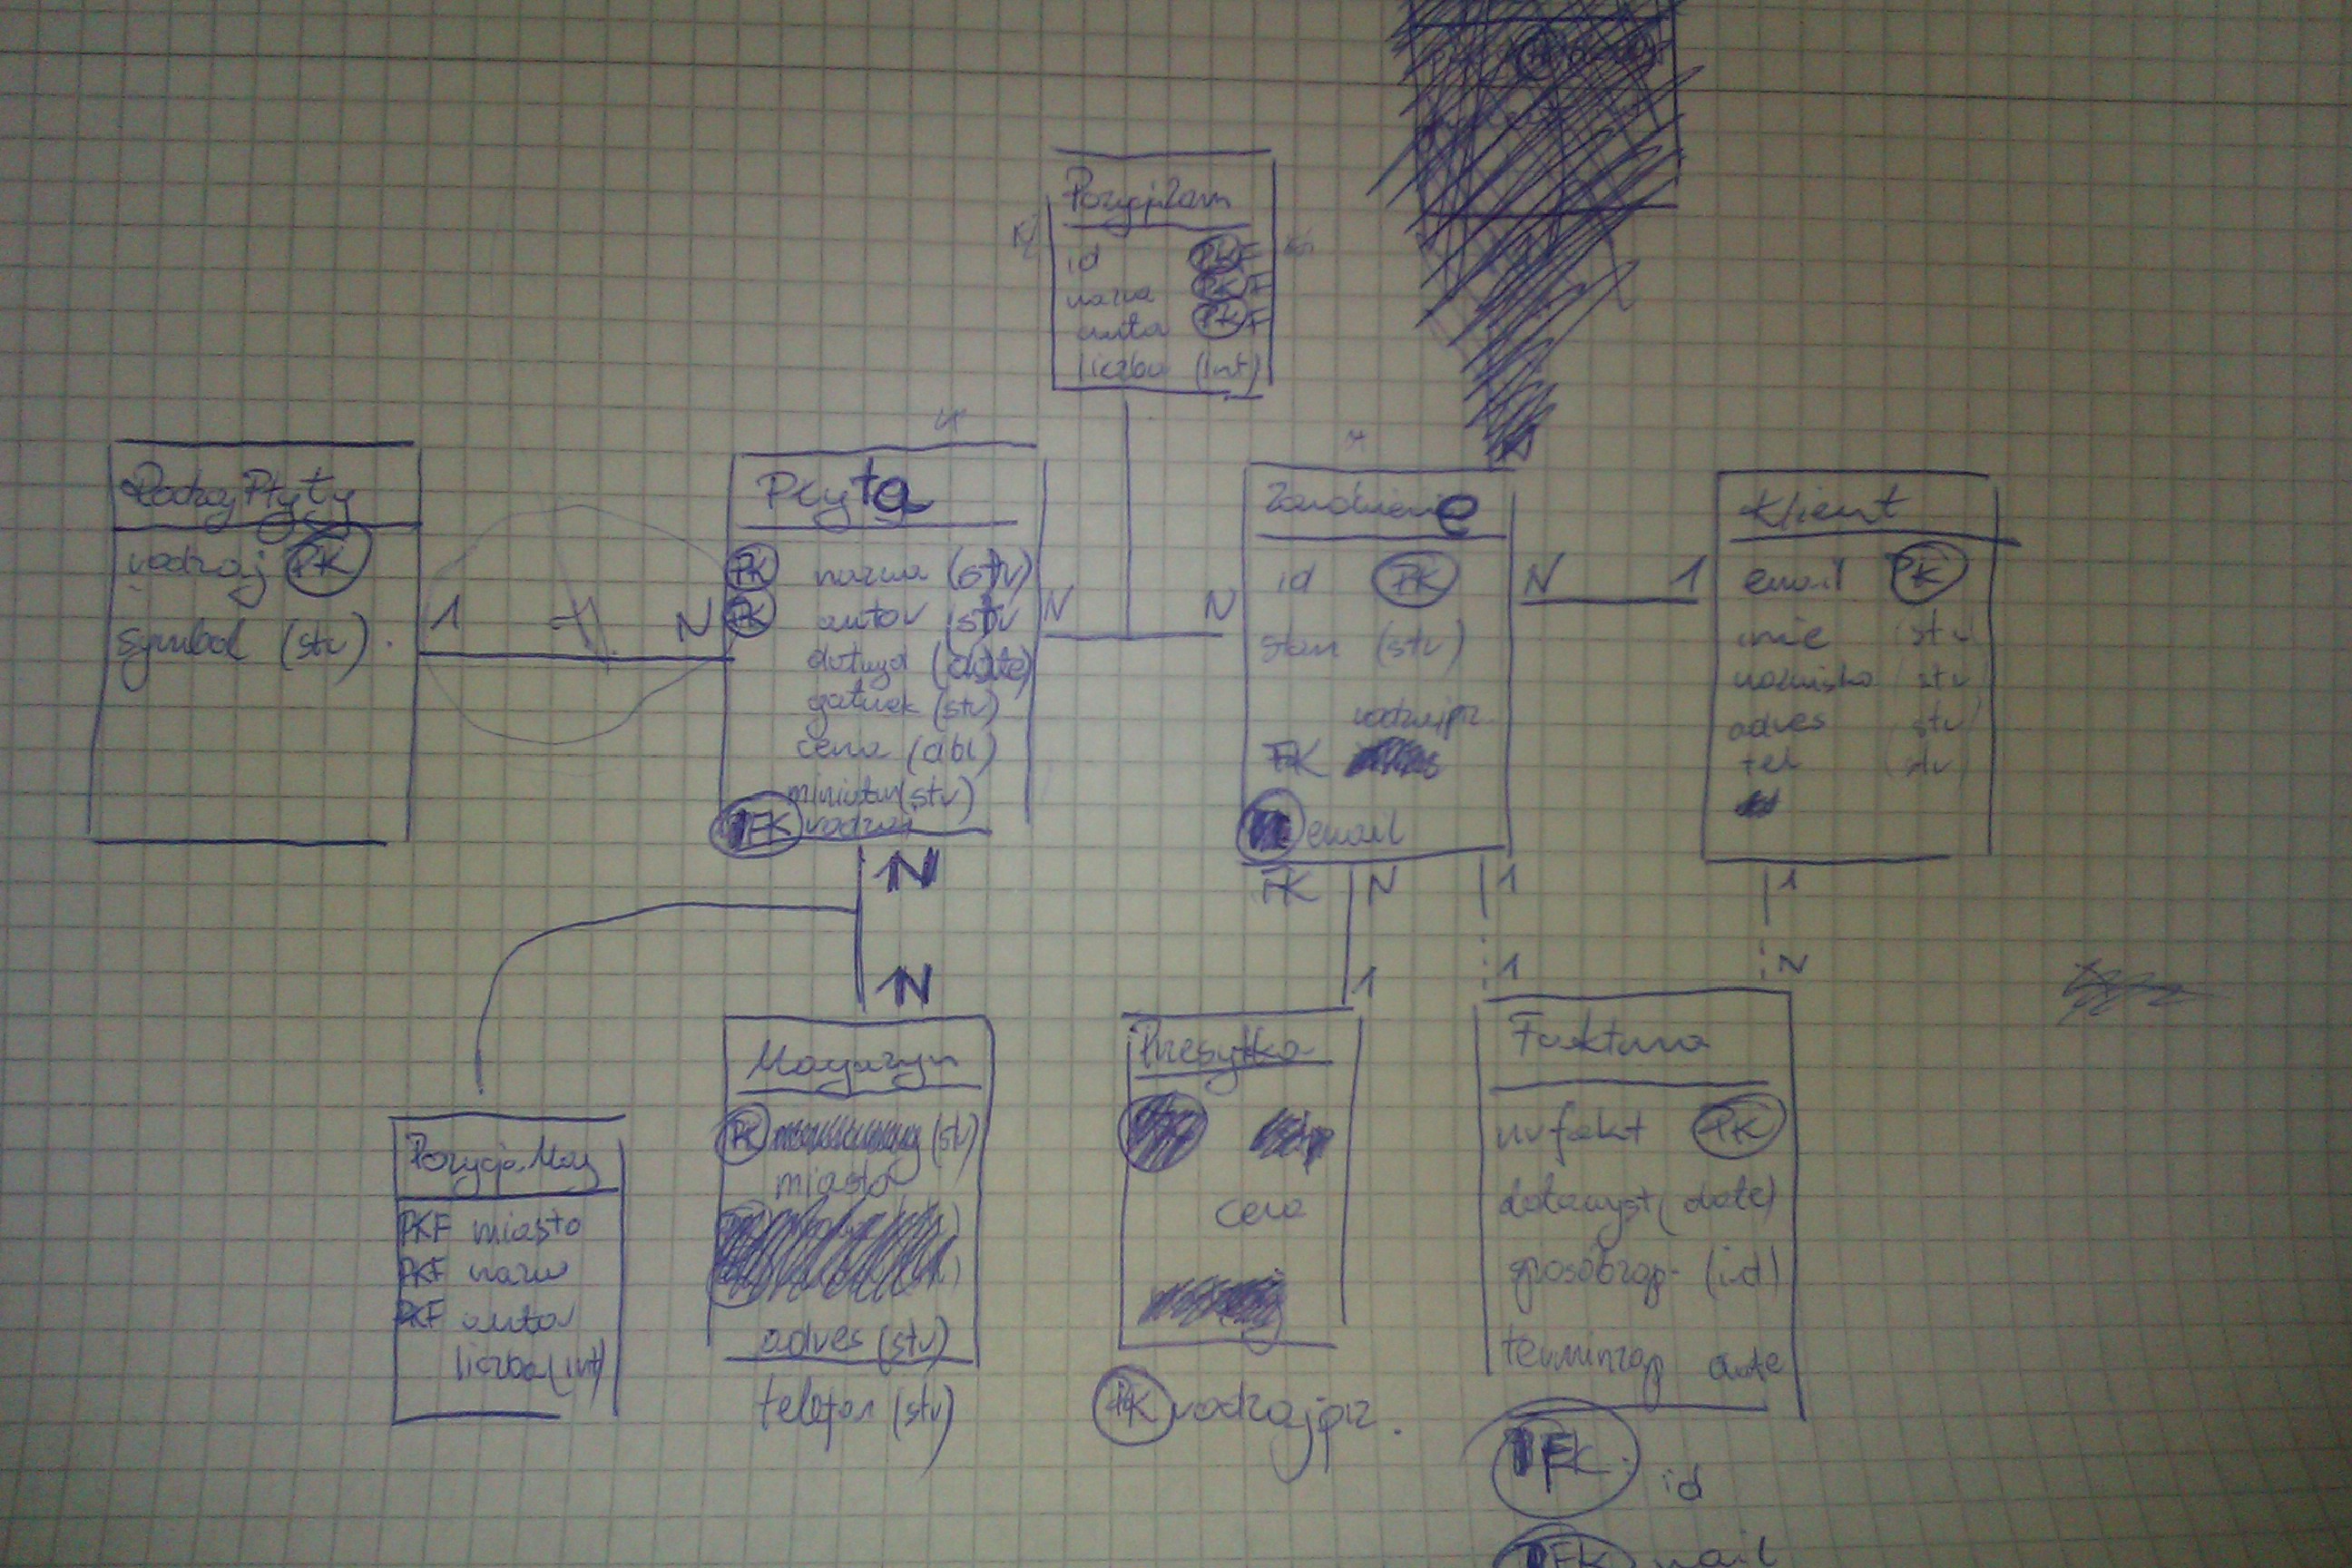 PozycjZam
id PKF
nazwa PKF
autor PKF
liczba (int)
RodzajPłyty
rodzaj PK
symbol (str)
1
N
Płyta
PK nazwa (str)
PK autor (str)
datwyd (date)
gatunek (str)
cena (dbl)
miniatur (str)
FK rodzaj
N
N
Zamówienie
id PK
stan (str)
rodzajprz
FK
email
FK
N
1
Klient
email PK
imie (str)
nazwisko (str)
adres (str)
tel (str)
N
N
N
1
1
1
1
N
PozycjaMag
PKF miasto
PKF nazw
PKF autor
liczba (int)
Magazyn
PK (str)
miasto
adres (str)
telefon (str)
Przesyłka
cena
PK rodzajprz.
Faktura
nrfakt PK
datawyst (date)
sposobzap (id)
terminzap date
FK id
FK mail